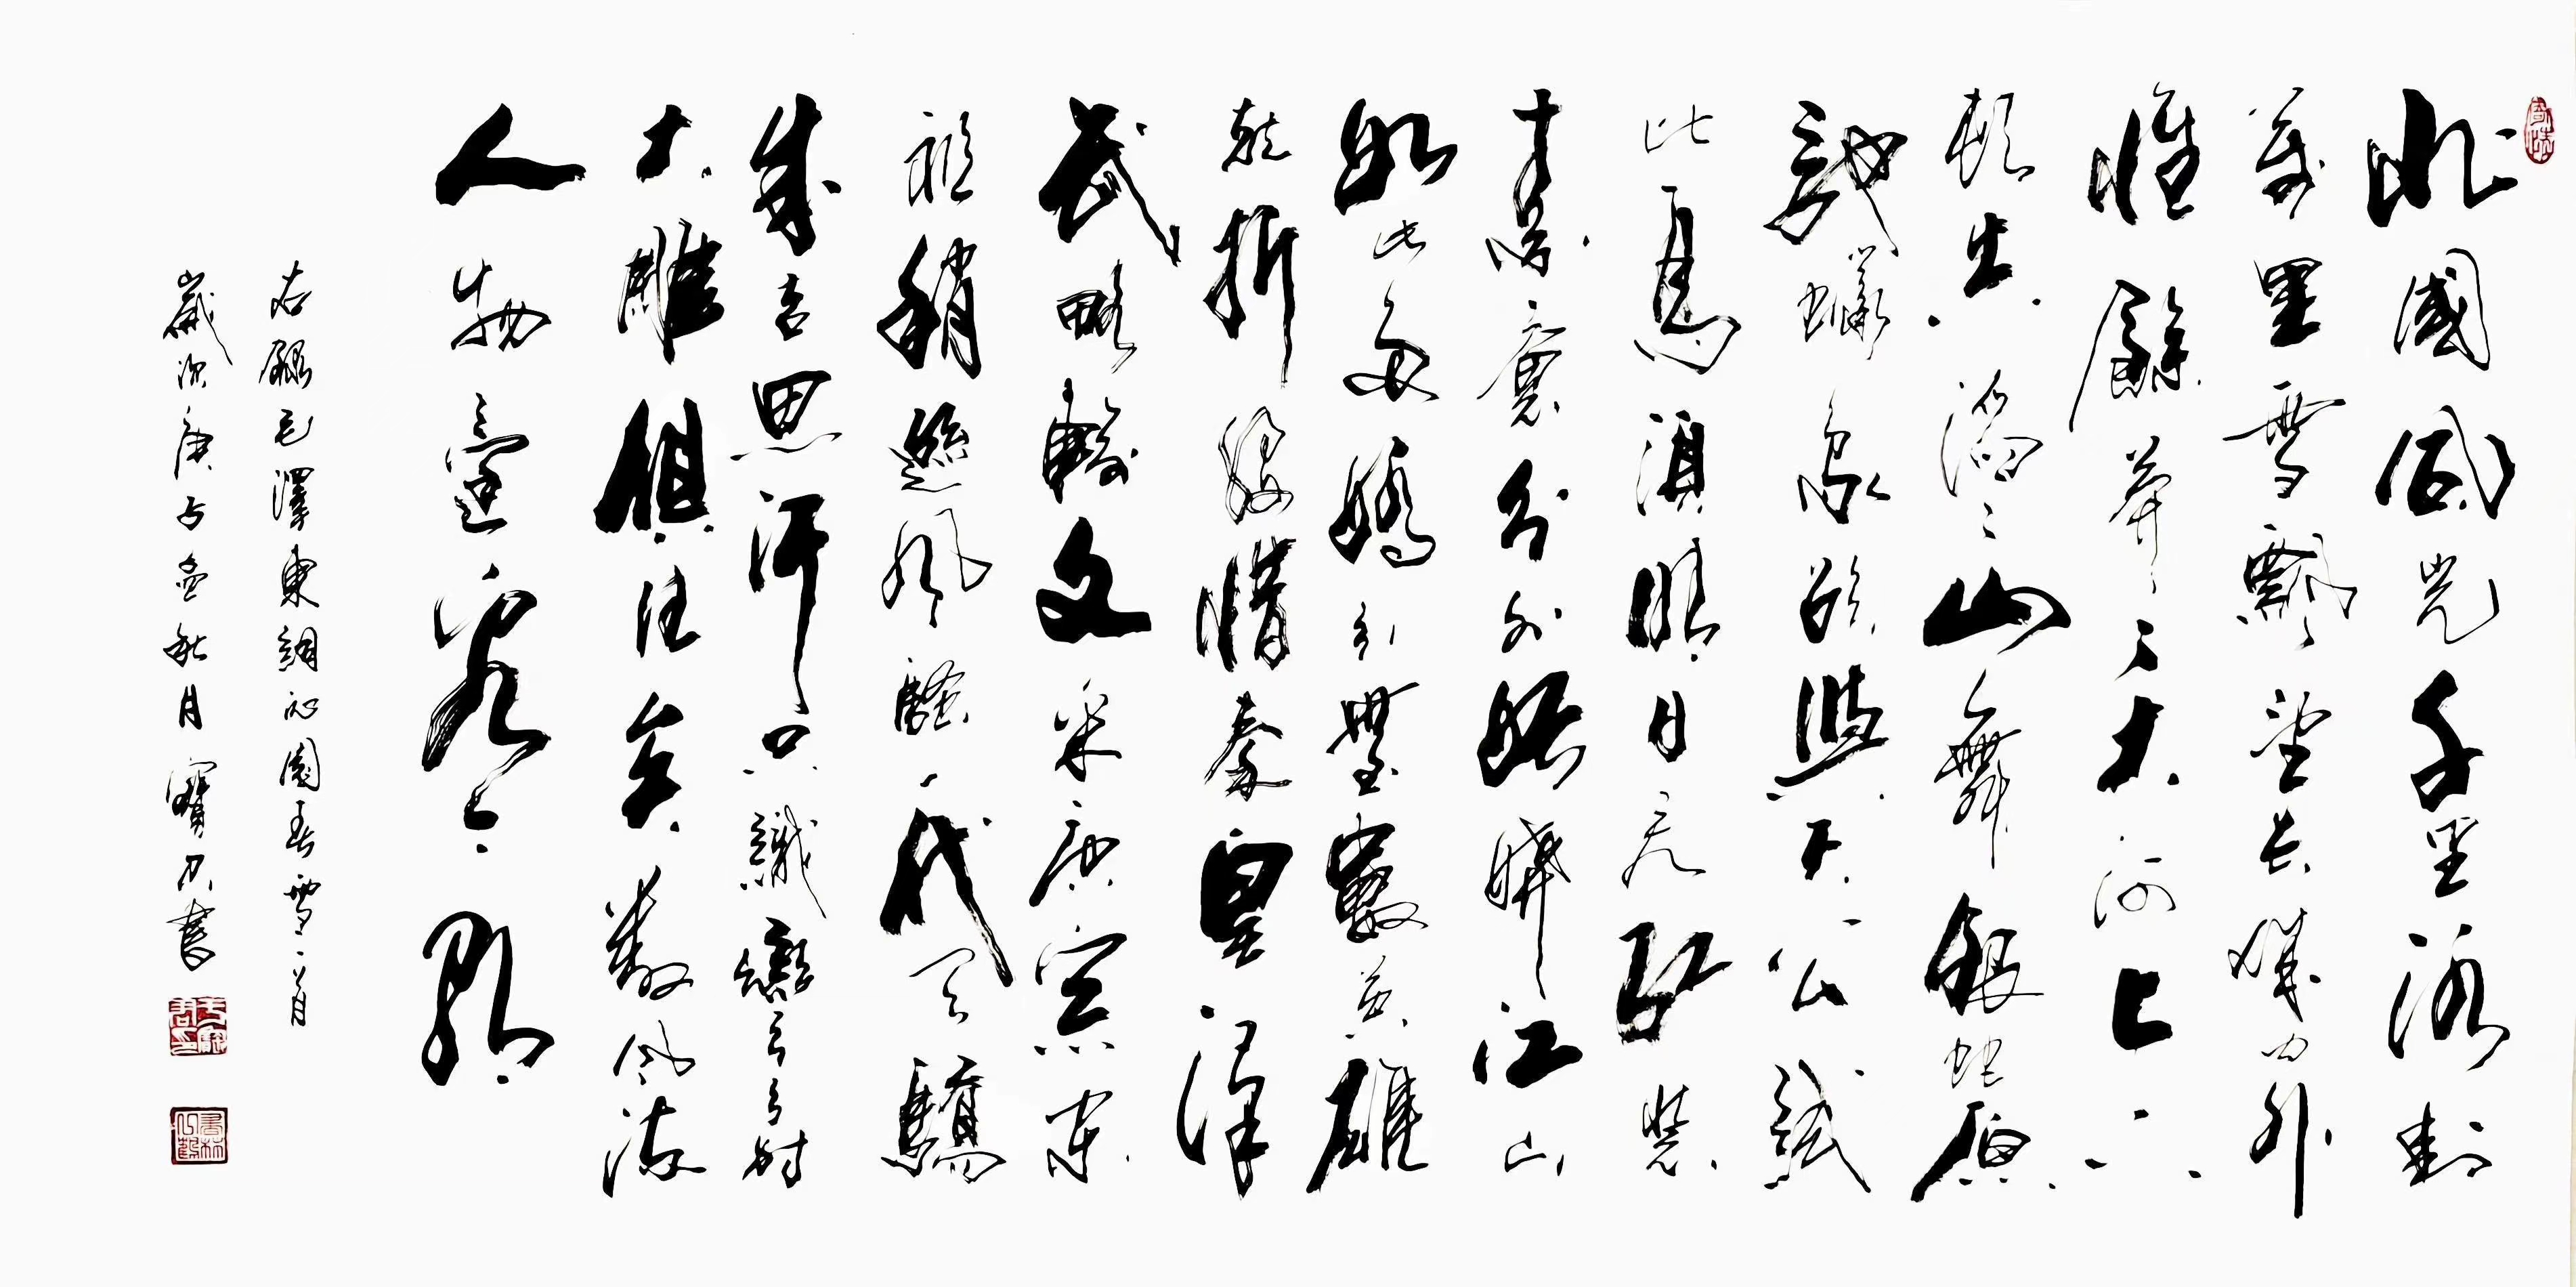 北國風光千里冰封
萬里雪飄望長城内外
惟餘莽莽大河上下
頓失滔滔山舞銀蛇原
馳蠟象欲與天公試
比高須晴日看紅裝
素裹分外妖嬈江山
如此多嬌引無數英雄
競折腰惜秦皇漢
武略輸文采唐宗宋
祖稍遜風騷一代天驕
成吉思汗只識彎弓射
大雕俱往矣數風流
人物還看今朝
右録毛澤東詞沁園春雪一首
歲次庚子秋月寶書